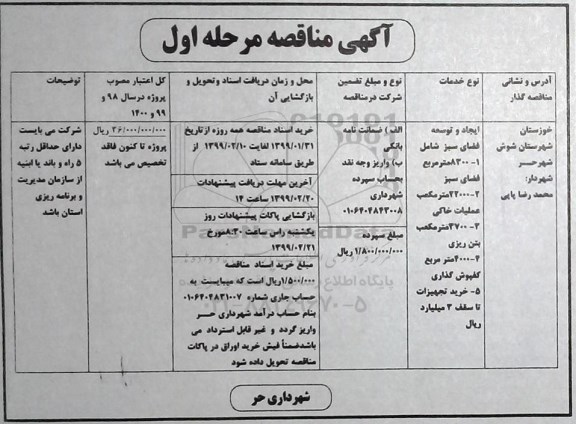 آگهی مناقصه مرحله اول
آدرس و نشانی
مناقصه گذار
نوع خدمات
نوع و مبلغ تضمین
شرکت درمناقصه
محل و زمان دریافت اسناد وتحویل و
بازگشایی آن
کل اعتبار مصوب
پروژه درسال ۹۸ و
۹۹ و ۱۴۰۰
توضیحات
خوزستان
شهرستان شوش
شهرحر
شهردار:
محمد رضا پاپی
ایجاد و توسعه
فضای سبز شامل
۱-۸۳۰۰مترمربع
فضای سبز
۲-۲۲۰۰۰مترمکعب
عملیات خاکی
۳-۳۷۰۰مترمکعب
بتن ریزی
۴-۴۰۰۰متر مربع
کفپوش گذاری
۵- خرید تجهیزات
تا سقف ۳ میلیارد
ریال
الف ) ضمانت نامه
بانکی
ب) واریز وجه نقد
بحساب سپرده
شهرداری
۰۱۰۶۴۰۴۸۴۳۰۰۸
مبلغ سپرده
۱/۸۰۰/۰۰۰/۰۰۰ ریال
خرید اسناد مناقصه همه روزه ازتاریخ
۱۳۹۹/۰۱/۳۱ لغایت ۱۳۹۹/۰۲/۱۰ از
طریق سامانه ستاد
آخرین مهلت دریافت پیشنهادات
۱۳۹۹/۰۲/۲۰ ساعت ۱۴
بازگشایی پاکات پیشنهادات روز
یکشنبه راس ساعت ۸:۳۰مورخ
۱۳۹۹/۰۲/۲۱
مبلغ خرید اسناد مناقصه
۱/۵۰۰/۰۰۰ریال است که میبایست به
حساب جاری شماره ۰۱۰۶۴۰۴۸۳۱۰۰۷
بنام حساب درآمد شهرداری حــر
واریز گردد و غیر قابل استرداد می
باشدضمناً فیش خرید اوراق در پاکات
مناقصه تحویل داده شود
۳۶/۰۰۰/۰۰۰/۰۰۰ ریال
پروژه تا کنون فاقد
تخصیص می باشد
شرکت می بایست
دارای حداقل رتبه
۵ راه و باند یا ابنیه
از سازمان مدیریت
و برنامه ریزی
استان باشد
شهرداری حر